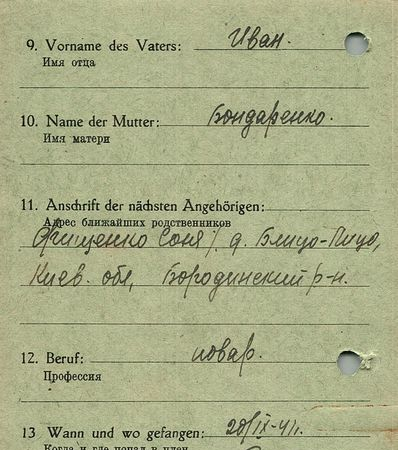 9. Vorname des Vaters: Иван.
Имя отца
10. Name der Mutter: Бондаренко.
Имя матери
11. Anschrift der nächsten Angehörigen:
Адрес ближайших родственников
Соня д. Блидо-Пидо,
Киев. обл, Бородинский р-н.
12. Beruf: повар.
Профессия
13 Wann und wo gefangen: 20/IX-41г.
Когда и где попал в плен